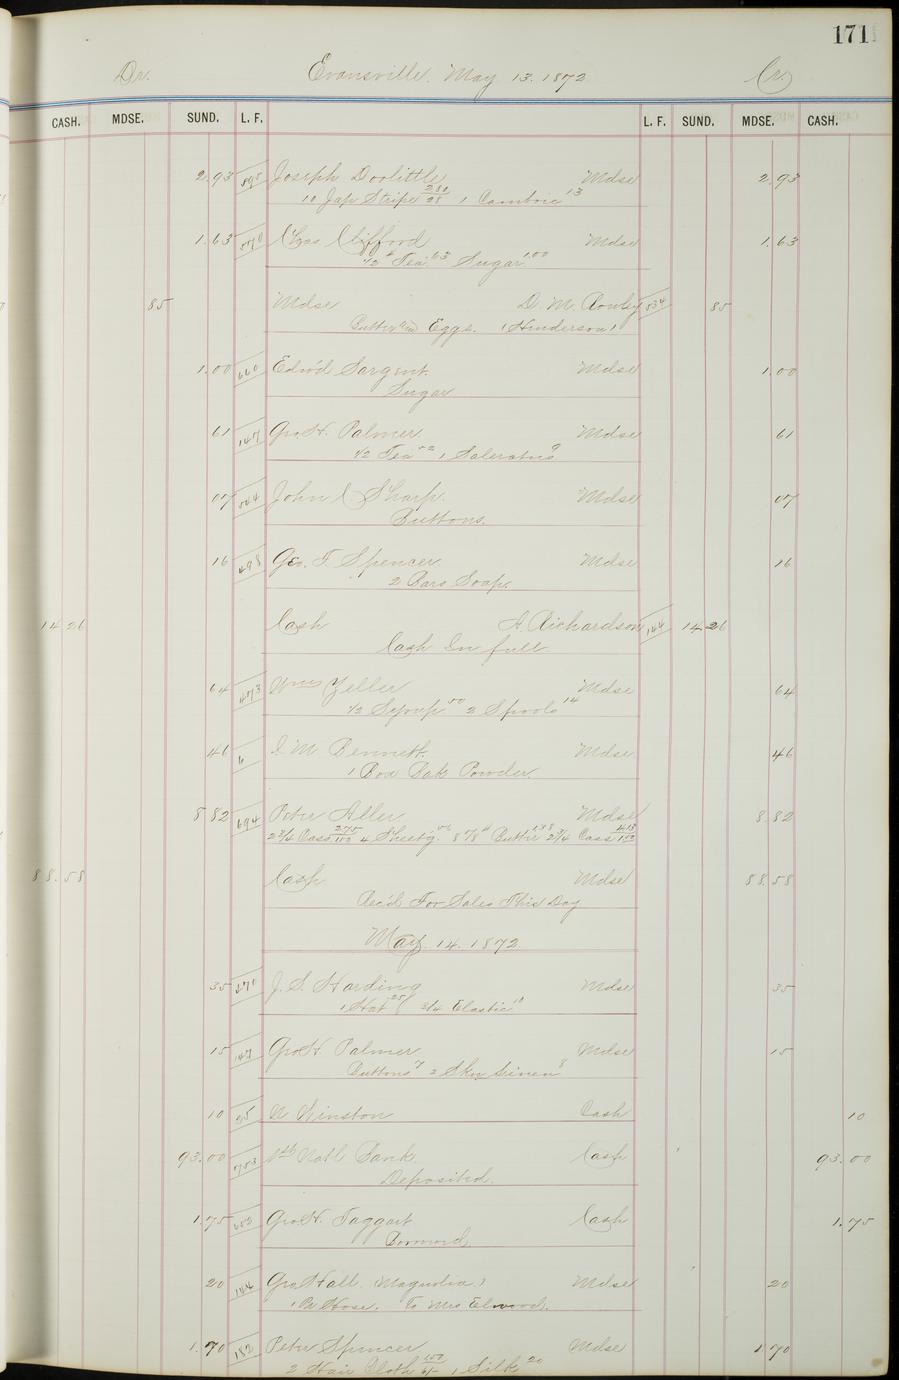 171
Dr. Evansville. May 13. 1872 Cr.
CASH. MDSE. SUND. L. F. L. F. SUND. MDSE. CASH.
2.93 595 Joseph Doolittle Mdse 2.93
10 Jap Stripe 280/28 1 Cambric 13
1.63 Chas Clifford Mdse 1.63
1/2 # Tea 63 Sugar 1.00
85 Mdse D. M. Rowley 534 85
Butter and Eggs. (Henderson)
1.00 660 Edw'd Sargent Mdse 1.00
Sugar
61 147 Geo. H. Palmer Mdse 61
1/2 Tea 52 1 Saleratus 9
07 544 John C. Sharp. Mdse 07
Buttons.
16 498 Geo. T. Spencer Mdse 16
2 Bars Soap.
14 26 Cash A. Richardson 144 14 26
Cash In full
64 473 Wm Zeller Mdse 64
1/2 Syrup 50 2 Spools 14
46 6 Bennett. Mdse. 46
1 Box Bak Powder.
8 82 694 Peter Aller Mdse 8.82
2 3/4 Cass 275/100 4 Sheet'g. 56 8 7/8 # Butter 1.38 2 3/4 Cass 413/150
88.58 Cash Mdse 88.58
Rec'd For Sales This Day
May. 14. 1872.
35 J. S. Harding Mdse 35
1 Hat 25 3/4 Elastic 10
15 147 Geo. H. Palmer Mdse 15
Buttons 7 2 Skn Linen 8
10 55 Winston Cash 10
93.00 753 1st Natl Bank. Cash 93.00
Deposited.
1.75 652 Geo. H. Taggart Cash 1.75
Borrowed
20 144 Geo Hall. (Magnolia.) Mdse 20
1 Pr Hose. To Mrs Elwood.
1.70 182 Peter Spencer Mdse 1 70
2 Hair Cloth 150 1 Silk 20